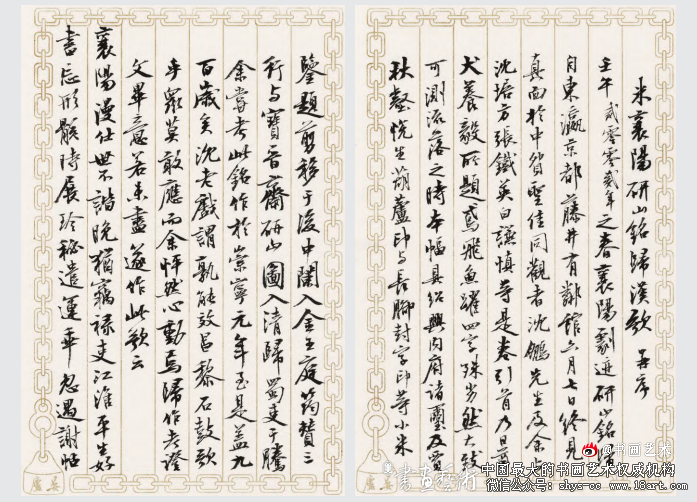 米襄陽研山銘歸漢歌 并序
壬午貳零零貳年之春襄陽劇迹研山銘歸
自東瀛京都藤井有鄰館六月七日終見
真面於中貿聖佳同觀者沈鵬先生及余
沈培方張鐵英白謙慎等是卷引首乃日
犬養毅所題鳶飛魚躍四字殊劣然大
可測流落之時本幅具紹興内府諸璽及賈
秋壑悦生葫蘆印与長脚封字印等小米
鑒題剪移于後中闌入金王庭筠贊三
行与寶晉齋研山圖入清歸蜀吏于騰
余嘗考此銘作於崇寧元年至是蓋九
百歲矣沈老戲謂孰能效昌黎石鼓歌
乎眾莫敢應而余怦然心動焉歸作考證
文畢意若未盡遂作此歌云
襄陽漫仕世不諧晚猶竊禄走江淮平生好
書忘形骸時展珍秘遣運乖忽遇謝帖
@书画艺术
中国最大的书画艺术权威机构
微信公众号：shys-cc www.18art.com